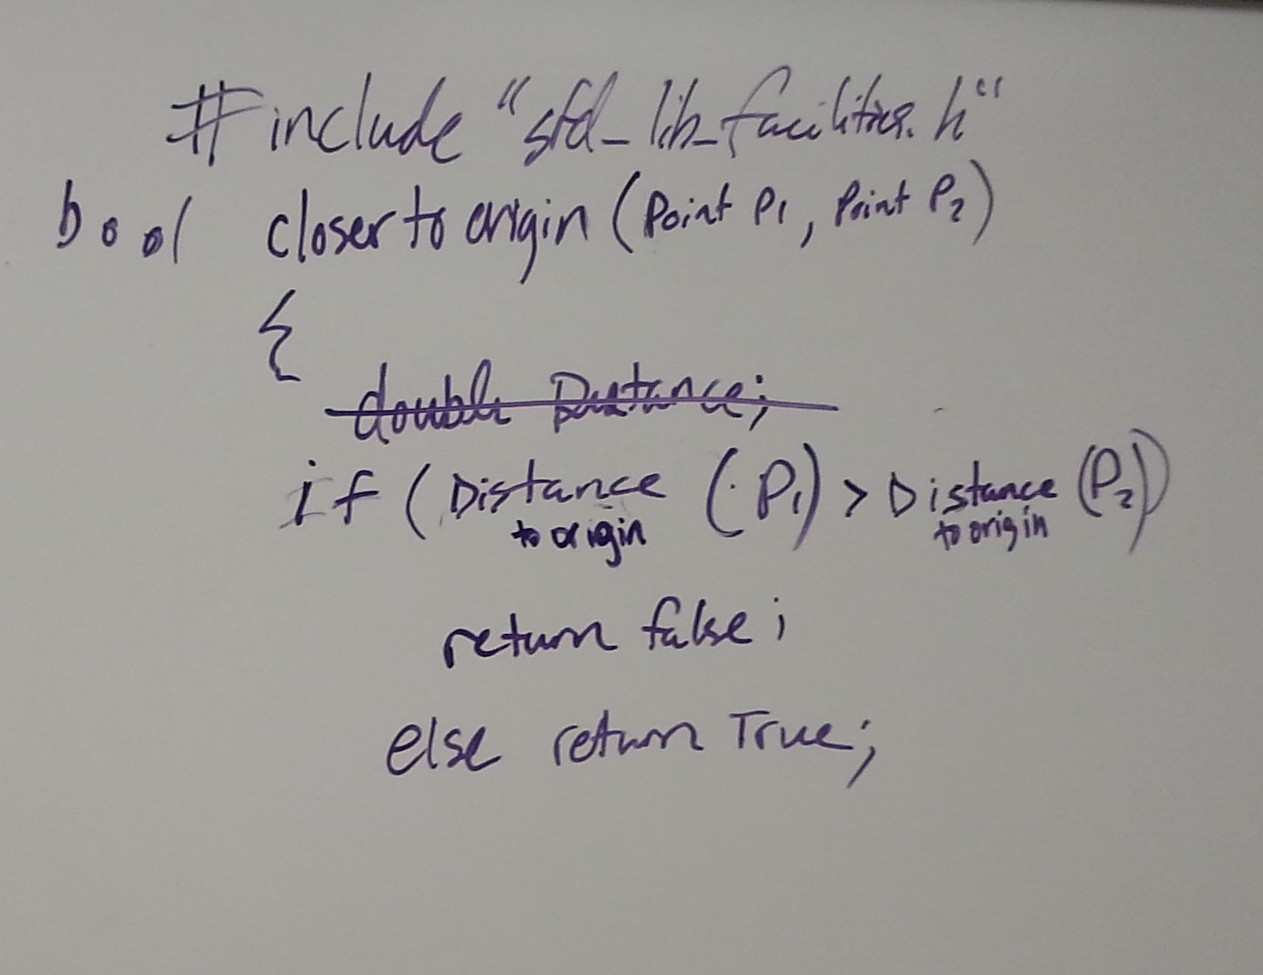 #include "std_lib_facilities.h"
bool closer to origin (Point P1, Point P2)
{
double Distance;
if (Distance to origin (P1) > Distance to origin (P2))
return false;
else return True;